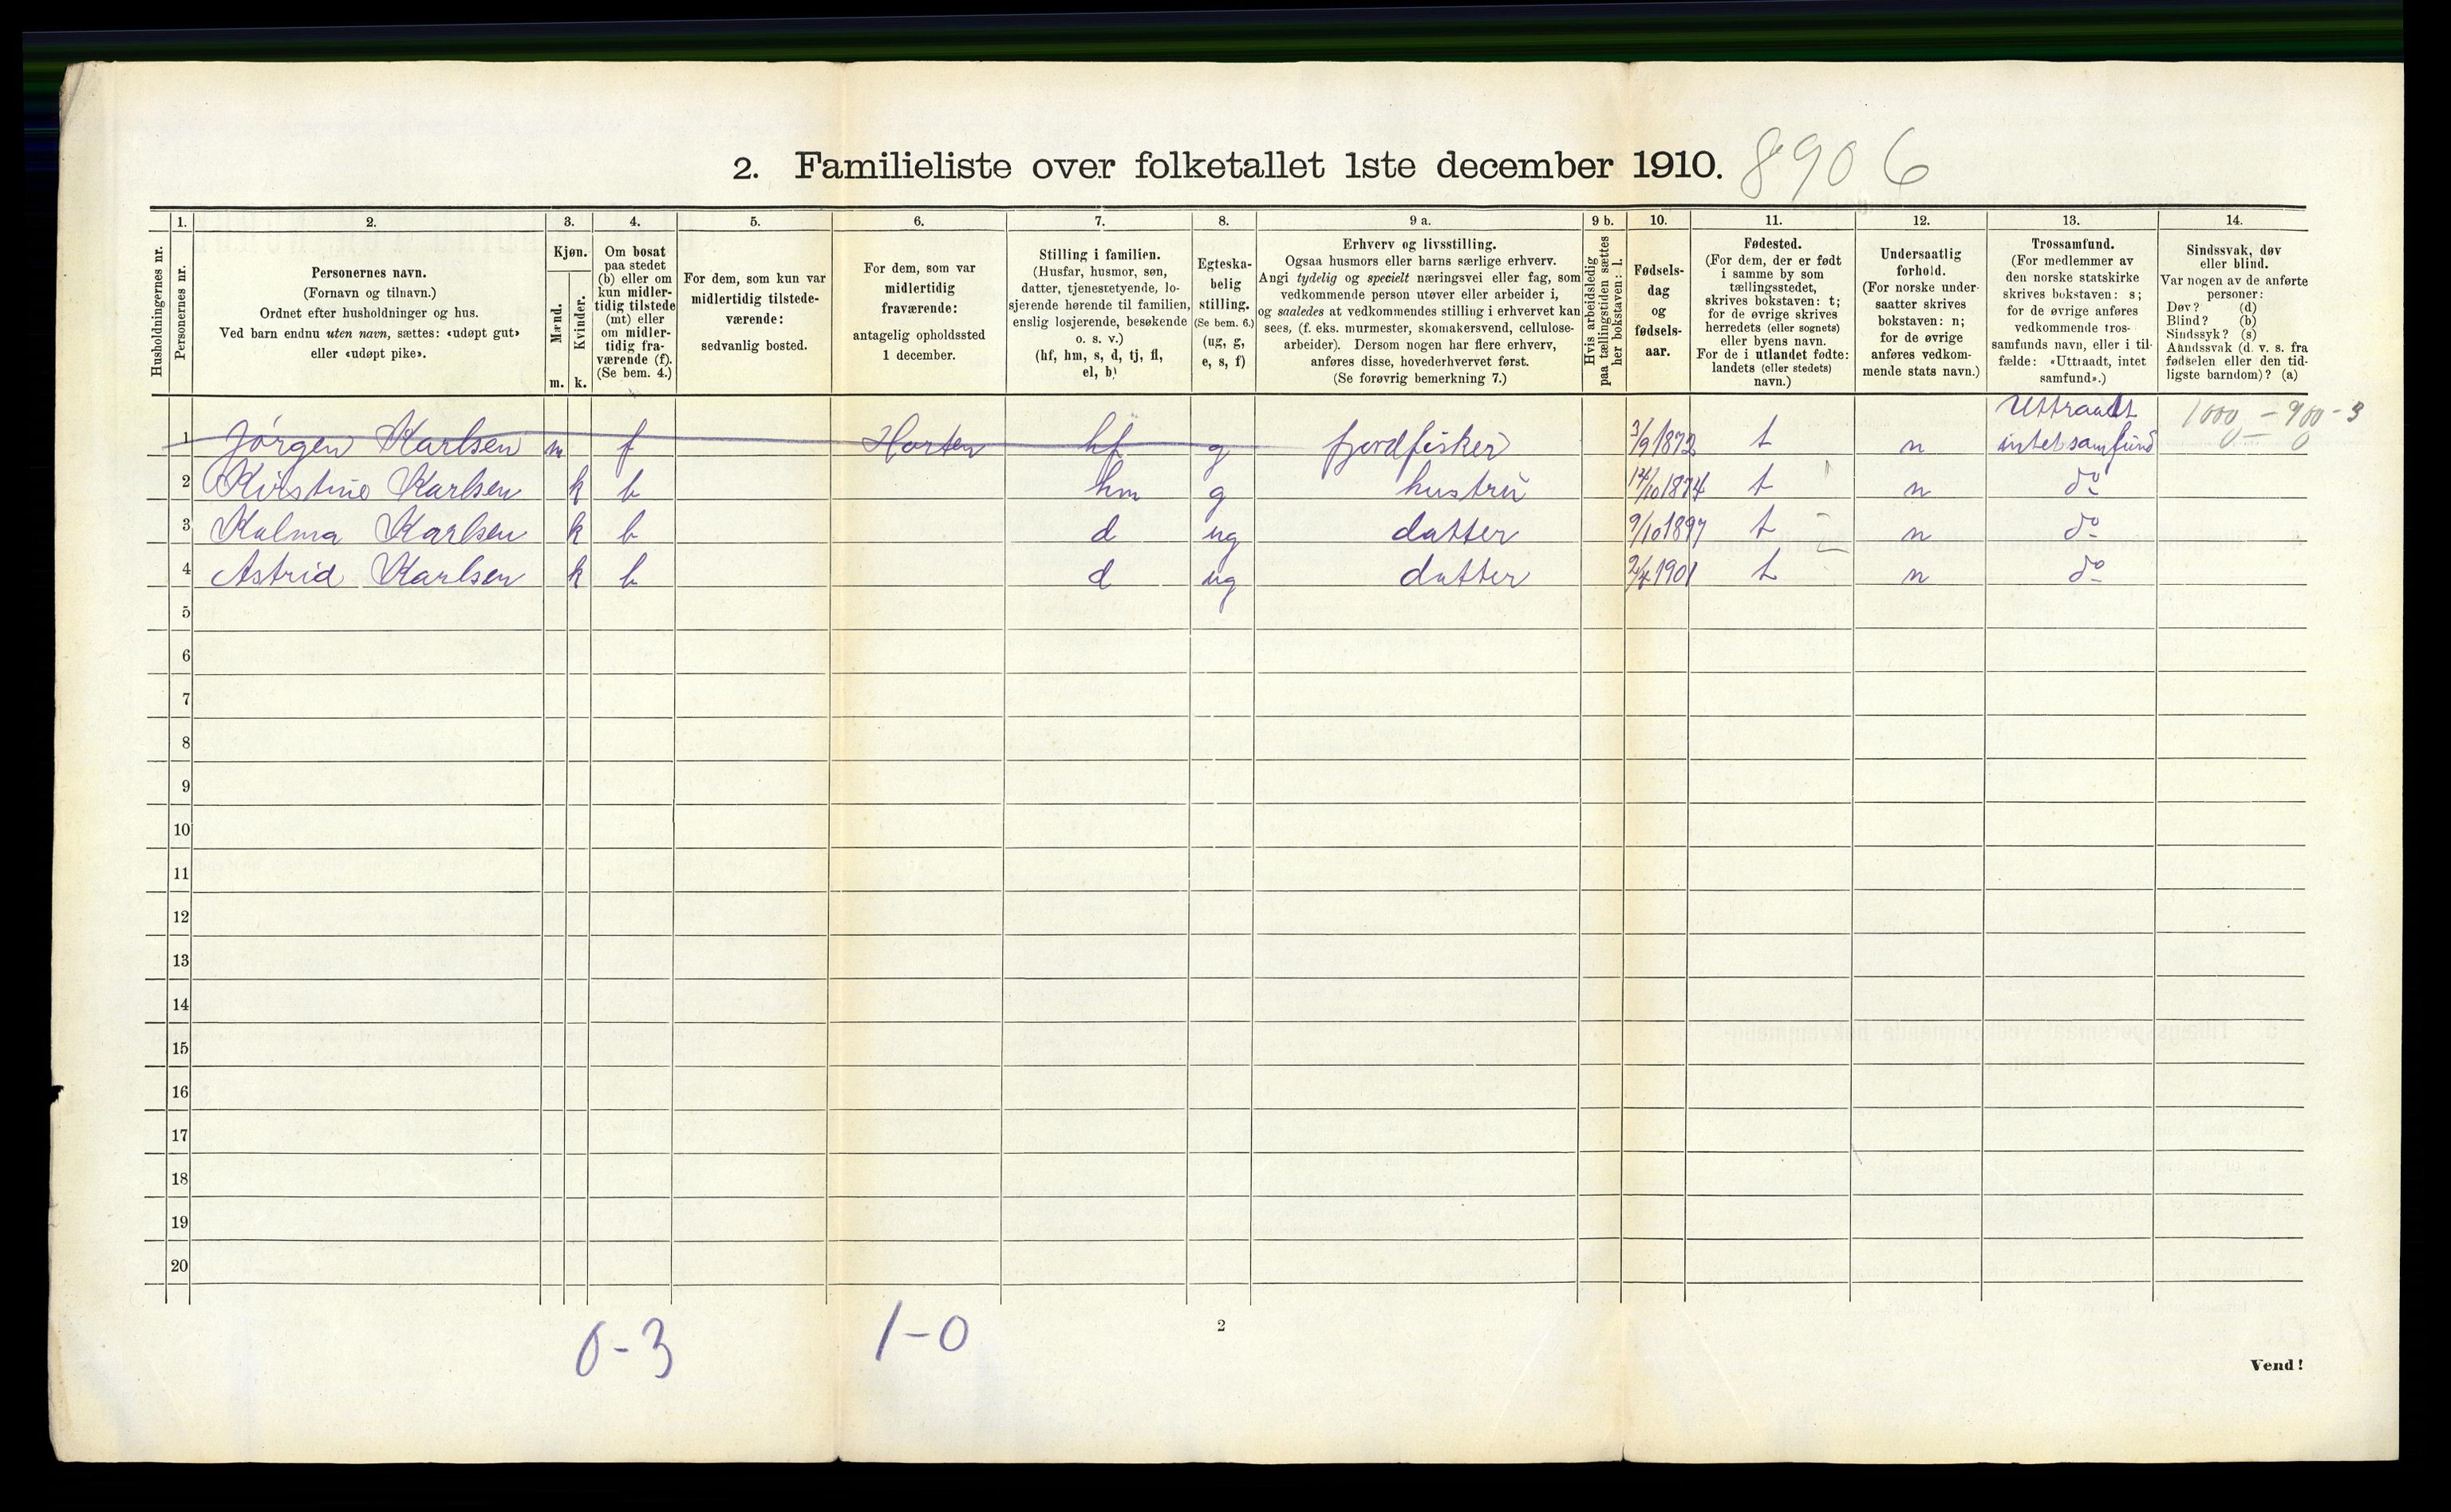 2. Familieliste over folketallet 1ste december 1910. 8906
Husholdningernes nr.
1. Personernes nr.
2. Personernes navn.
(Fornavn og tilnavn.)
Ordnet efter husholdninger og hus.
Ved barn endnu uten navn, sættes: «udøpt gut»
eller «udøpt pike».
3. Kjøn.
Mænd. m.
Kvinder. k.
4. Om bosat
paa stedet
(b) eller om
kun midler-
tidig tilstede
(mt) eller
om midler-
tidig fra-
værende (f).
(Se bem. 4.)
5. For dem, som kun var
midlertidig tilstede-
værende:
sedvanlig bosted.
6. For dem, som var
midlertidig
fraværende:
antagelig opholdssted
1 december.
7. Stilling i familien.
(Husfar, husmor, søn,
datter, tjenestetyende, lo-
sjerende hørende til familien,
enslig losjerende, besøkende
o. s. v.)
(hf, hm, s, d, tj, fl,
el, b)
8. Egteska-
belig
stilling.
(Se bem. 6.)
(ug, g,
e, s, f)
9 a. Erhverv og livsstilling.
Ogsaa husmors eller barns særlige erhverv.
Angi tydelig og specielt næringsvei eller fag, som
vedkommende person utøver eller arbeider i,
og saaledes at vedkommendes stilling i erhvervet kan
sees, (f. eks. murmester, skomakersvend, cellulose-
arbeider). Dersom nogen har flere erhverv,
anføres disse, hovederhvervet først.
(Se forøvrig bemerkning 7.)
9 b. Hvis arbeidsledig
paa tællingstiden sættes
her bokstaven: l.
10. Fødsels-
dag
og
fødsels-
aar.
11. Fødested.
(For dem, der er født
i samme by som
tællingsstedet,
skrives bokstaven: t;
for de øvrige skrives
herredets (eller sognets)
eller byens navn.
For de i utlandet fødte:
landets (eller stedets)
navn.)
12. Undersaatlig
forhold.
(For norske under-
saatter skrives
bokstaven: n;
for de øvrige
anføres vedkom-
mende stats navn.)
13. Trossamfund.
(For medlemmer av
den norske statskirke
skrives bokstaven: s;
for de øvrige anføres
vedkommende tros-
samfunds navn, eller i til-
fælde: «Uttraadt, intet
samfund».)
14. Sindssvak, døv
eller blind.
Var nogen av de anførte
personer:
Døv? (d)
Blind? (b)
Sindssyk? (s)
Aandssvak (d. v. s. fra
fødselen eller den tid-
ligste barndom)? (a)
Uttraadt 1000 - 900 - 3
1 Jørgen Karlsen m f Horten hf g fjordfisker 3/9 1872 t n intet samfund 0 - 0
2 Kirstine Karlsen k b hm g hustru 14/10 1874 t n do
3 Kalma Karlsen k b d ug datter 9/10 1897 t n do
4 Astrid Karlsen k b d ug datter 2/4 1901 t n do
5
6
7
8
9
10
11
12
13
14
15
16
17
18
19
20
0-3 1-0
2
Vend!